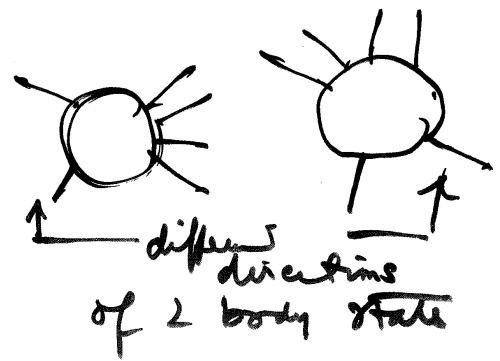 different
directions
of 2 body state